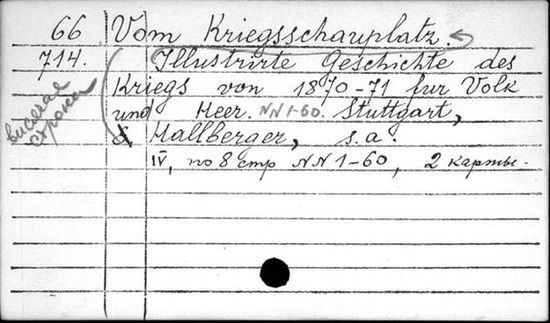 66 Vom Kriegsschauplatz.
714. Illustrirte Geschichte des
Kriegs von 1870-71 fur Volk
und Heer. NN 1-60. Stuttgart,
Hallberger, s.a.
IV, по 8 стр NN 1-60, 2 карты.
висячая
строка